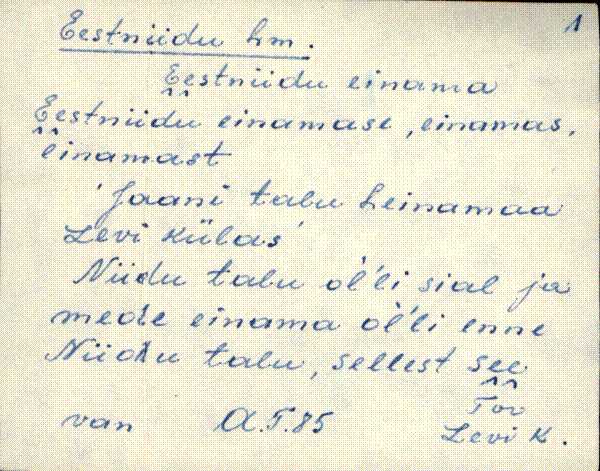 1
Eestniidu hm.
Eestniidu einama
Eestniidu einamase, einamas,
einamast
'Jaani talu heinamaa
Levi külas'
Niidu talu õl'li sial ja
mede einama õl'li enne
Niidu talu, sellest see
Tor
van A.T.85 Levi k.